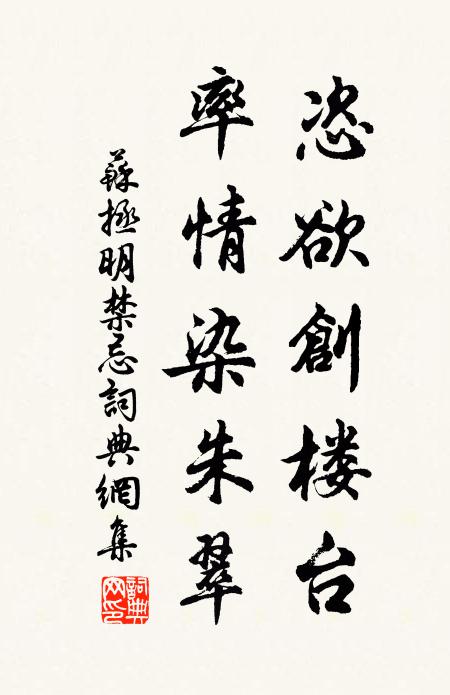 恣欲創楼台
率情染朱翠
蘇拯明禁忌詞典網集
詞典網印